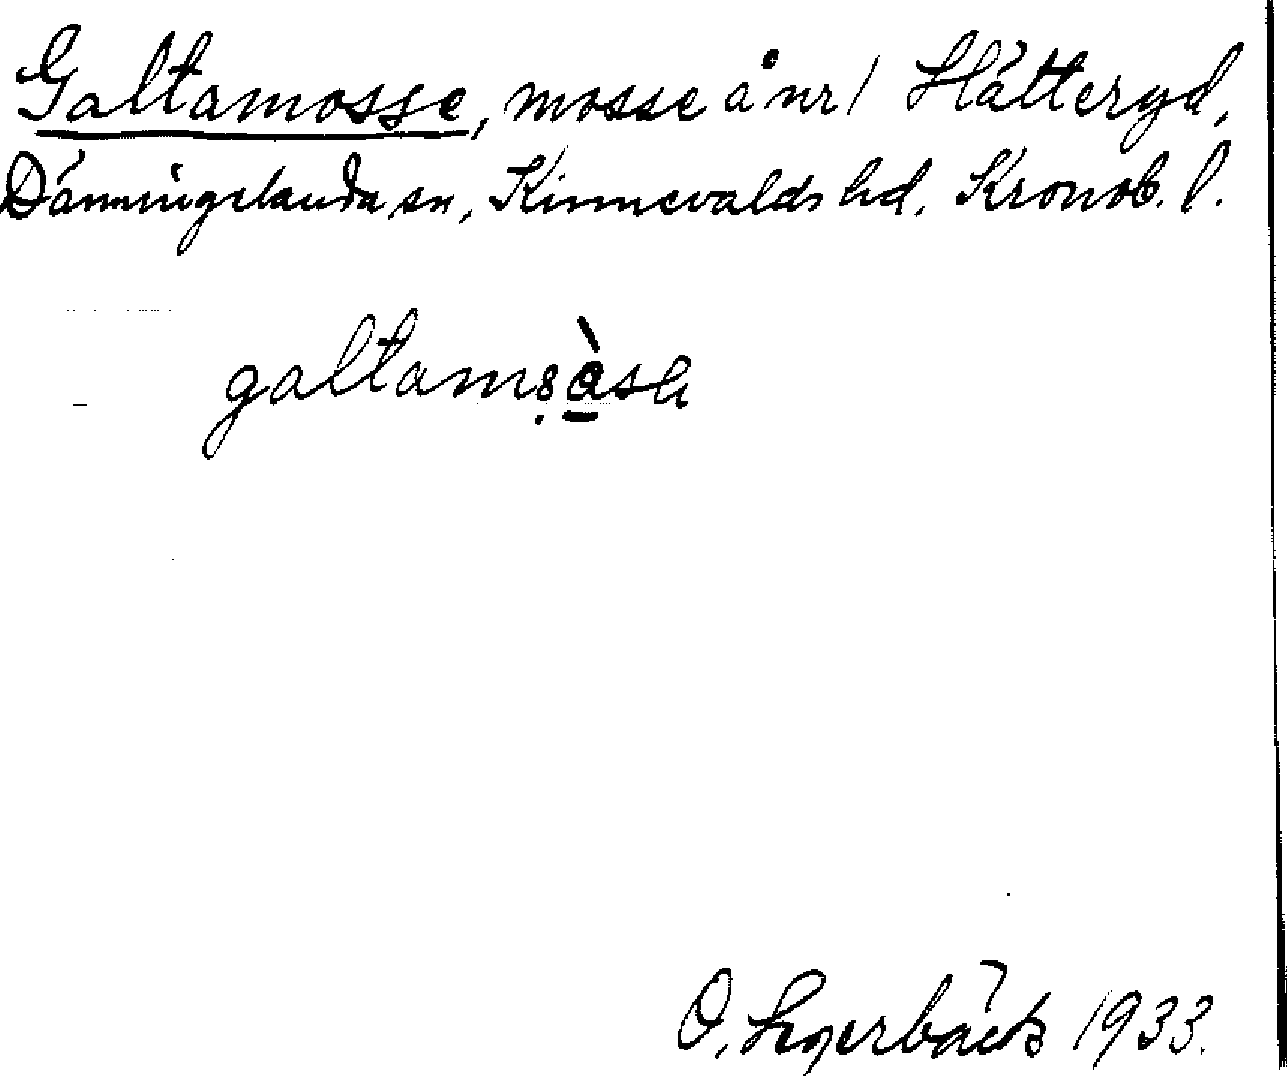 Galtamosse, mosse å nr 1 Hätteryd,
Dänningelanda sn, Kinnevalds hd. Kronob. l.
galtam
O. 1933.